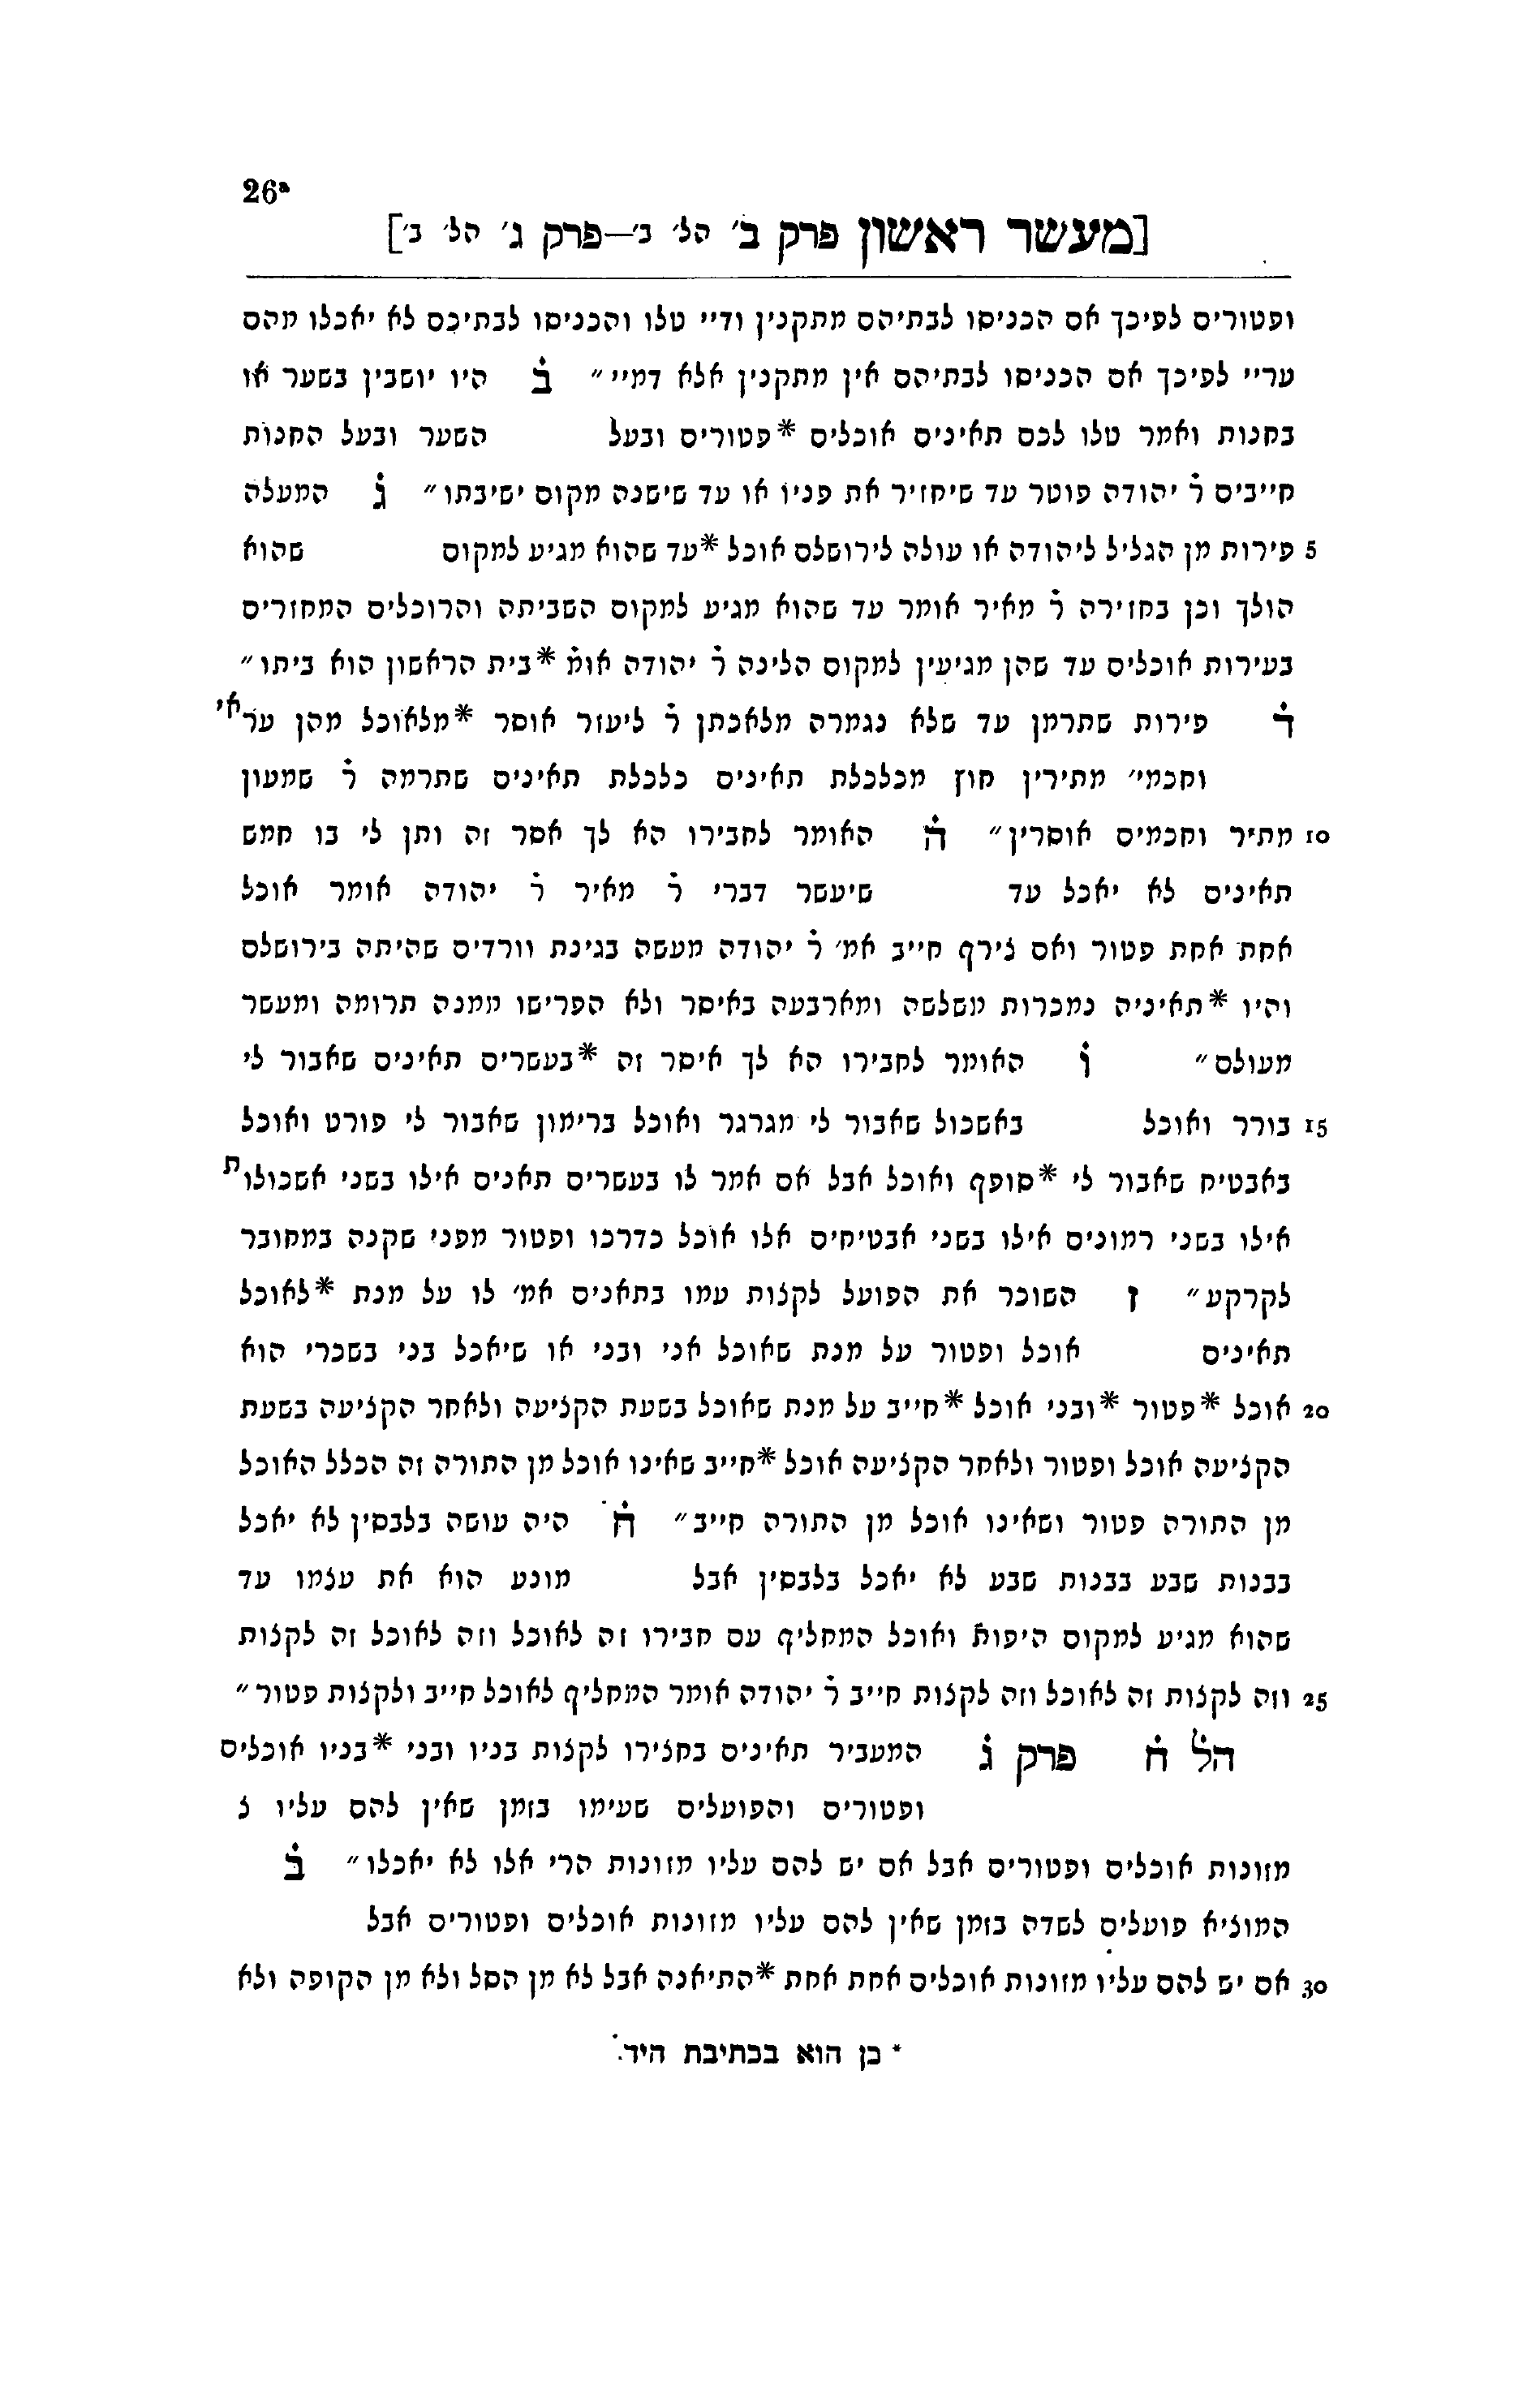 26ª
[מעשר ראשון פרק ב׳ הל׳ ב׳—פרק ג׳ הל׳ ב׳]
ופטורים לפיכך אם הכניסו לבתיהם מתקנין ודיי טלו והכניסו לבתיכם לא יאכלו מהם
עריי לפיכך אם הכניסו לבתיהם אין מתקנין אלא דמיי״ ב̇ היו יושבין בשער או
בחנות ואמר טלו לכם תאינים אוכלים *פטורים ובעל השער ובעל החנות
חייבים ר̇ יהודה פוטר עד שיחזיר את פניו או עד שישנה מקום ישיבתו״ ג̇ המעלה
5 פירות מן הגליל ליהודה או עולה לירושלם אוכל *עד שהוא מגיע למקום שהוא
הולך וכן בחזירה ר̇ מאיר אומר עד שהוא מגיע למקום השביתה והרוכלים המחזרים
בעירות אוכלים עד שהן מגיעין למקום הלינה ר̇ יהודה אומ̇ *בית הראשון הוא ביתו״
ד̇ פירות שתרמן עד שלא נגמרה מלאכתן ר̇ ליעזר אוסר *מלאוכל מהן עראי
וחכמי׳ מתירין חוץ מכלכלת תאינים כלכלת תאינים שתרמה ר̇ שמעון
10 מתיר וחכמים אוסרין״ ה̇ האומר לחבירו הא לך אסר זה ותן לי בו חמש
תאינים לא יאכל עד שיעשר דברי ר̇ מאיר ר̇ יהודה אומר אוכל
אחת אחת פטור ואם צירף חייב אמ׳ ר̇ יהודה מעשה בגינת וורדים שהיתה בירושלם
והיו *תאיניה נמכרות משלשה ומארבעה באיסר ולא הפרישו ממנה תרומה ומעשר
מעולם״ ו̇ האומר לחבירו הא לך איסר זה *בעשרים תאינים שאבור לי
15 בורר ואוכל באשכול שאבור לי מגרגר ואוכל ברימון שאבור לי פורט ואוכל
באבטיח שאבור לי *סופף ואוכל אבל אם אמר לו בעשרים תאנים אילו בשני אשכולות
אילו בשני רמונים אילו בשני אבטיחים אלו אוכל כדרכו ופטור מפני שקנה במחובר
לקרקע״ ז השוכר את הפועל לקצות עמו בתאנים אמ׳ לו על מנת *לאוכל
תאינים אוכל ופטור על מנת שאוכל אני ובני או שיאכל בני בשכרי הוא
20 אוכל *פטור *ובני אוכל *חייב על מנת שאוכל בשעת הקציעה ולאחר הקציעה בשעת
הקציעה אוכל ופטור ולאחר הקציעה אוכל *חייב שאינו אוכל מן התורה זה הכלל האוכל
מן התורה פטור ושאינו אוכל מן התורה חייב״ ח̇ היה עושה בלבסין לא יאכל
בבנות שבע בבנות שבע לא יאכל בלבסין אבל מונע הוא את עצמו עד
שהוא מגיע למקום היפות ואוכל המחליף עם חבירו זה לאוכל וזה לאוכל זה לקצות
25 וזה לקצות זה לאוכל וזה לקצות חייב ר̇ יהודה אומר המחליף לאוכל חייב ולקצות פטור״
הל̇ ח̇ פרק ג̇ המעביר תאינים בחצירו לקצות בניו ובני *בניו אוכלים
ופטורים והפועלים שעימו בזמן שאין להם עליו צ
מזונות אוכלים ופטורים אבל אם יש להם עליו מזונות הרי אלו לא יאכלו״ ב̇
המוציא פועלים לשדה בזמן שאין להם עליו מזונות אוכלים ופטורים אבל
30 אם יש להם עליו מזונות אוכלים אחת אחת *התיאנה אבל לא מן הסל ולא מן הקופה ולא
* כן הוא בכתיבת היד.